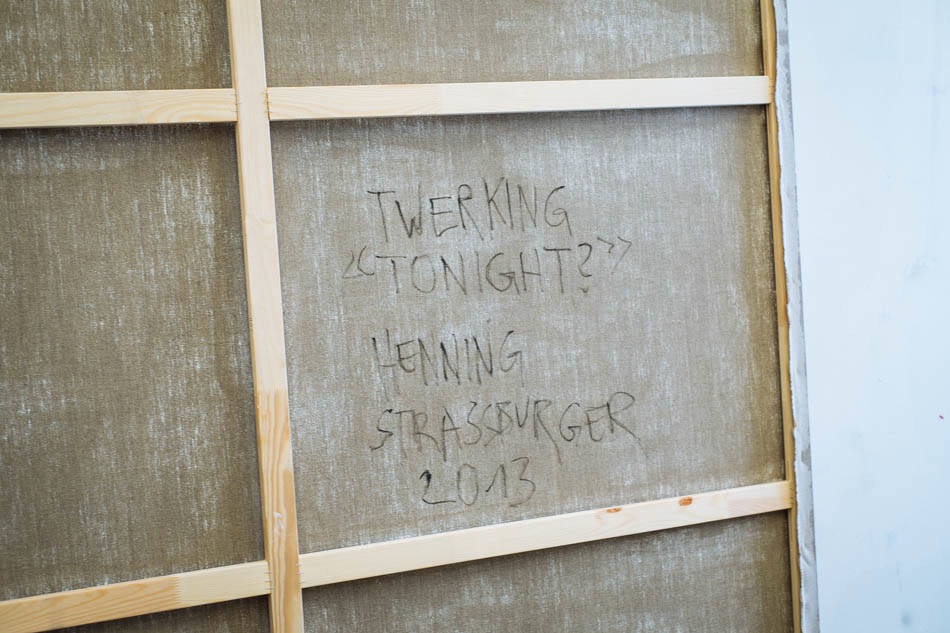 TWERKING
<<TONIGHT?>>
HENNING
STRASSBURGER
2013